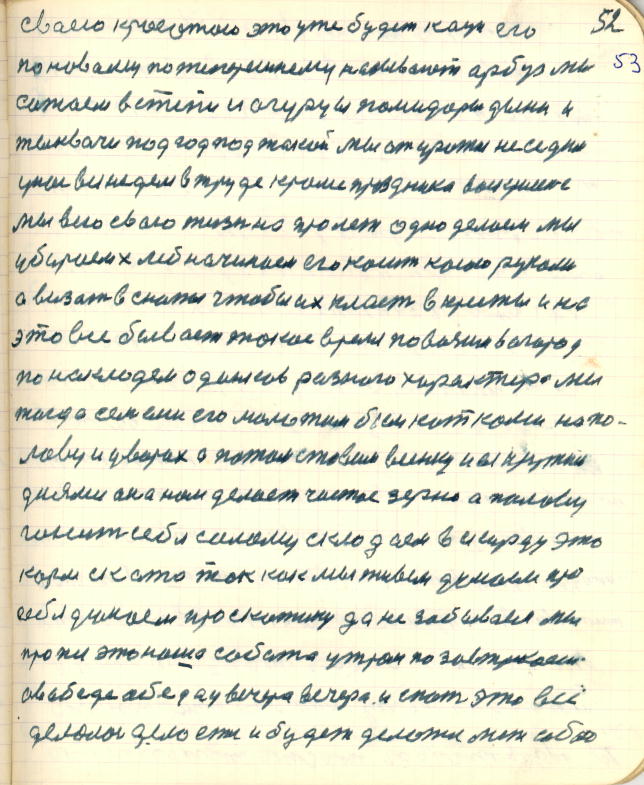 своего красотою это уже будет каун его 52
по новаму потеперешнему називают арбуз мы 53
сажаем в степи и агурци помидори дыни и
мы
умое в труде кроме праздника воскрисене
мы всю сваю жизн на про одно делаем мы
убираем хлеб начинаем его косит косою руками
а визат в снапы чтобы их класт в кресты и на
это все бывает такое время повозим вагород
по накладем одонков разного характера мы
тогда семени его молотим бьем катками на по-
лову и уворах а потом ставим веилку и ей крутим
днями ана нам делает чистое зерно а полову
гонит себя солому складаем в скирду это
корм скота так как мы живем думаем про
себя думаем про скотину да не забываем мы
про ни это наша собата утром позавтракаем
овабеде абеда у вечера вечера и спат это всё
делалос дело ест и будет делатся меж собою